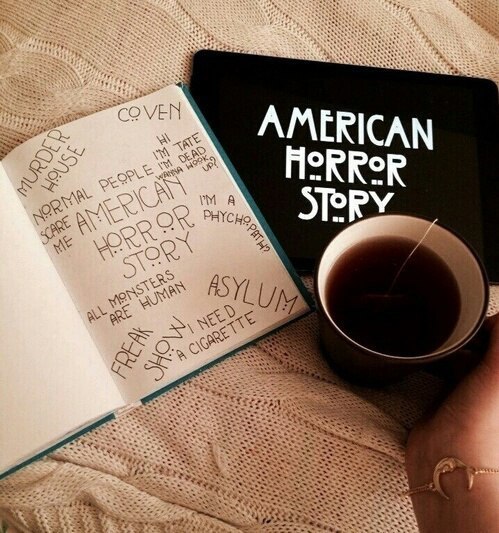 COVEN
MURDER
HOUSE
HI
I'M TATE
I'M DEAD
WANNA HOOK
UP?
NORMAL PEOPLE
SCARE
ME
AMERICAN
HORROR
STORY
I'M A
PHYCHOPATH?
ALL MONSTERS
ARE HUMAN
ASYLUM
FREAK
SHOW
I NEED
A CIGARETTE
AMERICAN
HORROR
STORY